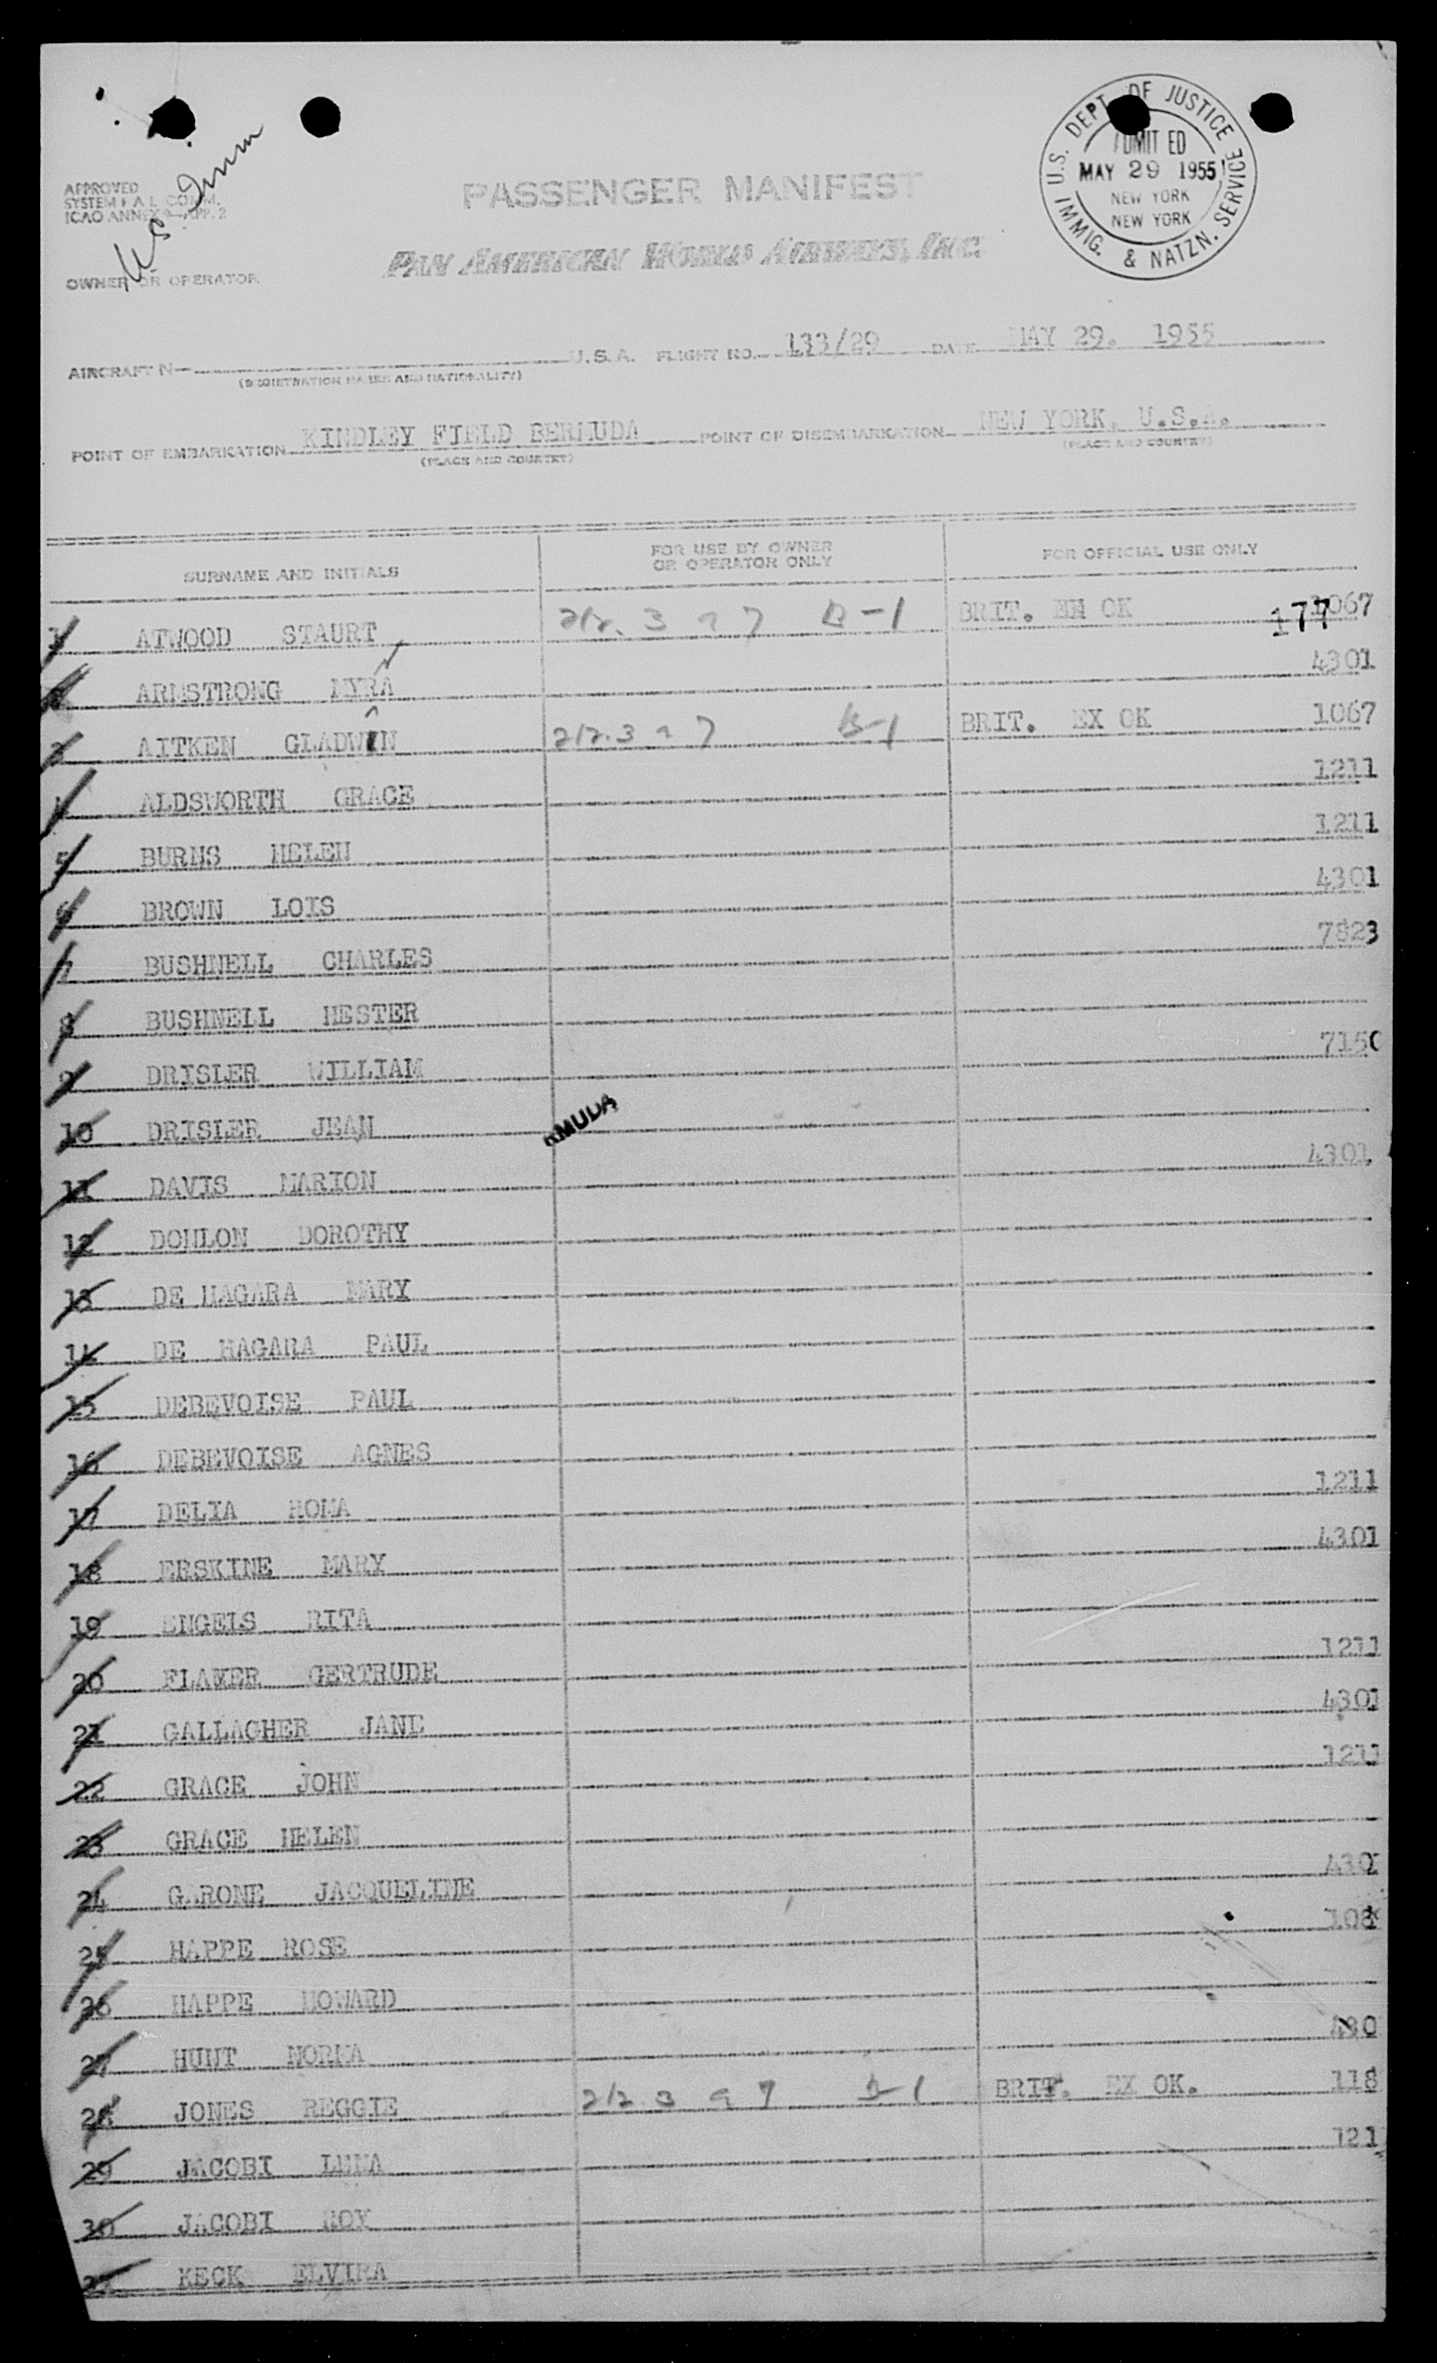 U.S. DEPT. OF JUSTICE
ADMITTED
MAY 29 1955
NEW YORK
NEW YORK
IMMIG. & NATZN. SERVICE
U.S. Imm
APPROVED
SYSTEM F A L COMM.
ICAO ANNEX 9-APP. 2
PASSENGER MANIFEST
PAN AMERICAN WORLD AIRWAYS, INC.
OWNER OR OPERATOR
AIRCRAFT N- U.S.A. FLIGHT NO. 133/29 DATE MAY 29. 1955
(REGISTRATION MARKS AND NATIONALITY)
POINT OF EMBARKATION KINDLEY FIELD BERMUDA POINT OF DISEMBARKATION NEW YORK, U.S.A.
(PLACE AND COUNTRY) (PLACE AND COUNTRY)
SURNAME AND INITIALS FOR USE BY OWNER OR OPERATOR ONLY FOR OFFICIAL USE ONLY
177
1 ATWOOD STAURT 212.3 a 7 B-1 BRIT. EX OK 1067
2 ARMSTRONG MYRA 4301
3 AITKEN GLADWIN 212.3 a 7 B-1 BRIT. EX OK 1067
4 ALDSWORTH GRACE 1211
5 BURNS HELEN 1211
6 BROWN LOIS 4301
7 BUSHNELL CHARLES 7823
8 BUSHNELL HESTER
9 DRISLER WILLIAM 7150
10 DRISLER JEAN RMUDA
11 DAVIS MARION 4301
12 DONLON DOROTHY
13 DE HAGARA MARY
14 DE HAGARA PAUL
15 DEBEVOISE PAUL
16 DEBEVOISE AGNES
17 DELIA ROMA 1211
18 ERSKINE MARY 4301
19 ENGELS RITA
20 FLAMER GERTRUDE 1211
21 GALLAGHER JANE 4301
22 GRACE JOHN 1211
23 GRACE HELEN
24 GARONE JACQUELINE 430
25 HAPPE ROSE 108
26 HAPPE HOWARD
27 HUNT NORMA 430
28 JONES REGGIE 212.3 a 7 B-1 BRIT. EX OK. 118
29 JACOBI LENA 121
30 JACOBI ROY
KECK ELVIRA